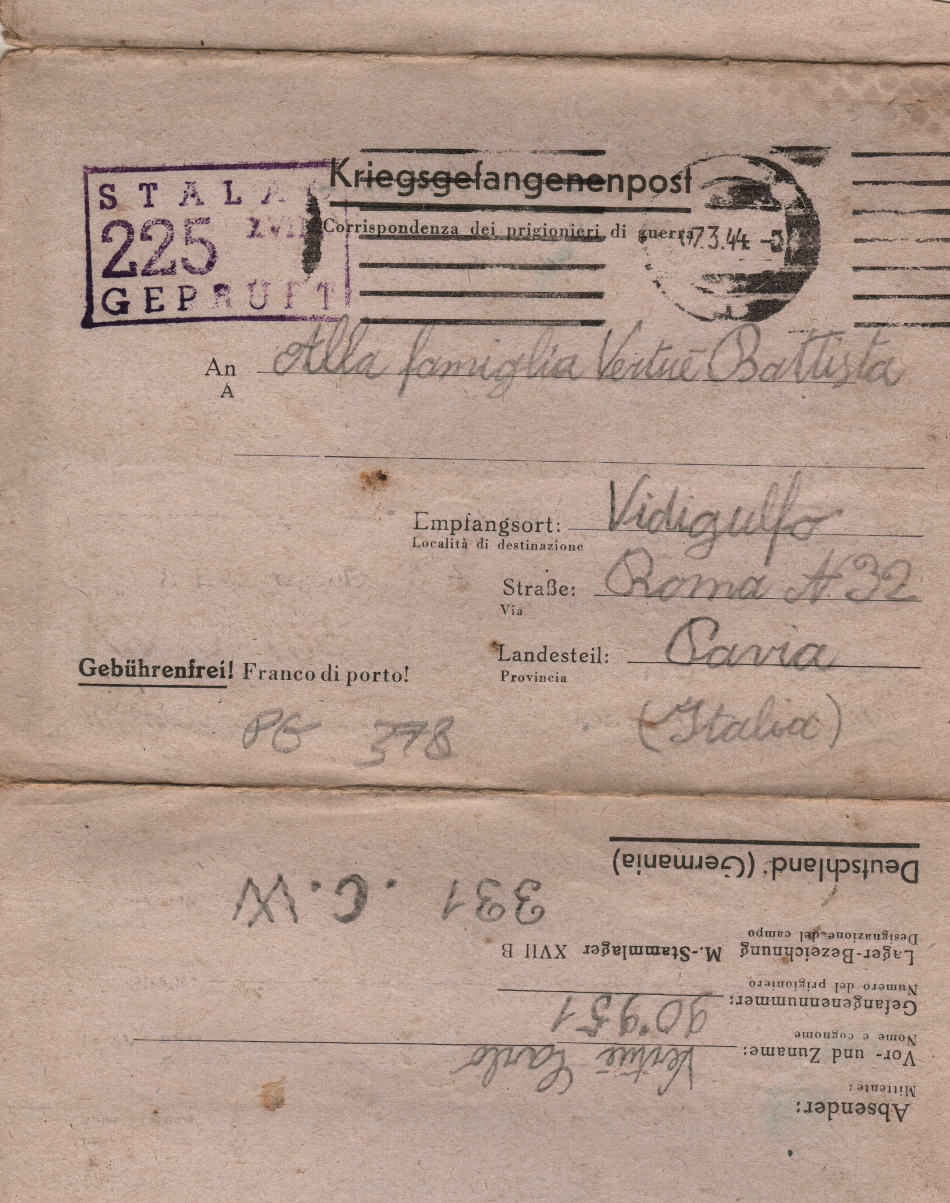 Kriegsgefangenenpost
Corrispondenza dei prigionieri di guerra
STALAG
225 XVII
GEPRÜFT
7.3.44
An Alla famiglia Vertué Battista
A
Empfangsort: Vidigulfo
Località di destinazione
Straße: Roma N. 32
Via
Landesteil: Pavia
Provincia
(Italia)
Gebührenfrei! Franco di porto!
PG 378
Absender:
Mittente:
Vor- und Zuname: Vertué Carlo
Nome e cognome
Gefangenennummer: 90951
Numero del prigioniero
Lager-Bezeichnung M.-Stammlager XVII B
Designazione del campo
331. C. W
Deutschland (Germania)